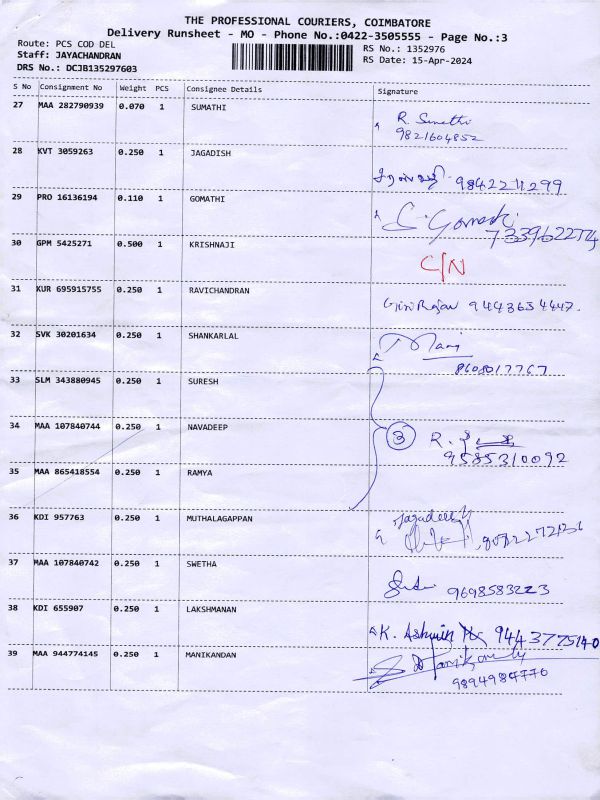 THE PROFESSIONAL COURIERS, COIMBATORE
Delivery Runsheet - MO - Phone No.:0422-3505555 - Page No.:3
Route: PCS COD DEL
RS No.: 1352976
Staff: JAYACHANDRAN
RS Date: 15-Apr-2024
DRS No.: DCJB135297603
S No Consignment No Weight PCS Consignee Details Signature
27 MAA 282790939 0.070 1 SUMATHI
R. Sumathi
9821604852
28 KVT 3059263 0.250 1 JAGADISH
9842211299
29 PRO 16136194 0.110 1 GOMATHI
30 GPM 5425271 0.500 1 KRISHNAJI
C/N
31 KUR 695915755 0.250 1 RAVICHANDRAN
GiriRajan 9443634447.
32 SVK 30201634 0.250 1 SHANKARLAL
Mani
8608017767
33 SLM 343880945 0.250 1 SURESH
34 MAA 107840744 0.250 1 NAVADEEP
③ R.
9585310092
35 MAA 865418554 0.250 1 RAMYA
36 KDI 957763 0.250 1 MUTHALAGAPPAN
37 MAA 107840742 0.250 1 SWETHA
9698583223
38 KDI 655907 0.250 1 LAKSHMANAN
K. Ashwin 9443775140
39 MAA 944774145 0.250 1 MANIKANDAN
9894984770